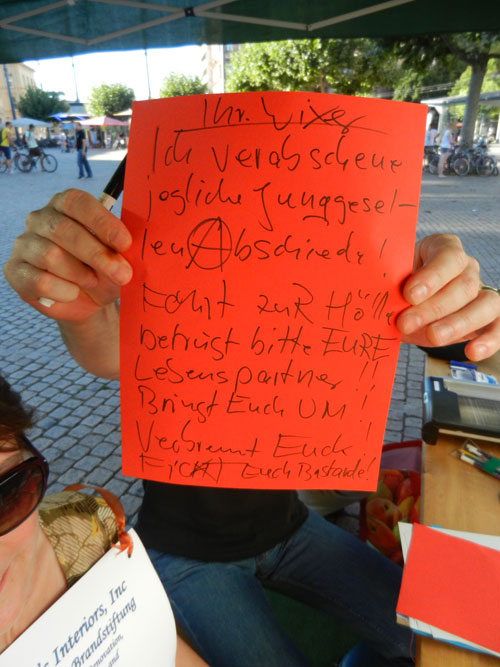 Ihr Wixer
Ich verabscheue
jegliche Junggesel-
len Abschiede!
Fahrt zur Hölle
betrügt bitte EURE
Lebenspartner!!
Bringt Euch UM!
Verbrennt Euch!
Fickt Euch Bastarde!
Interiors, Inc
Brandstiftung